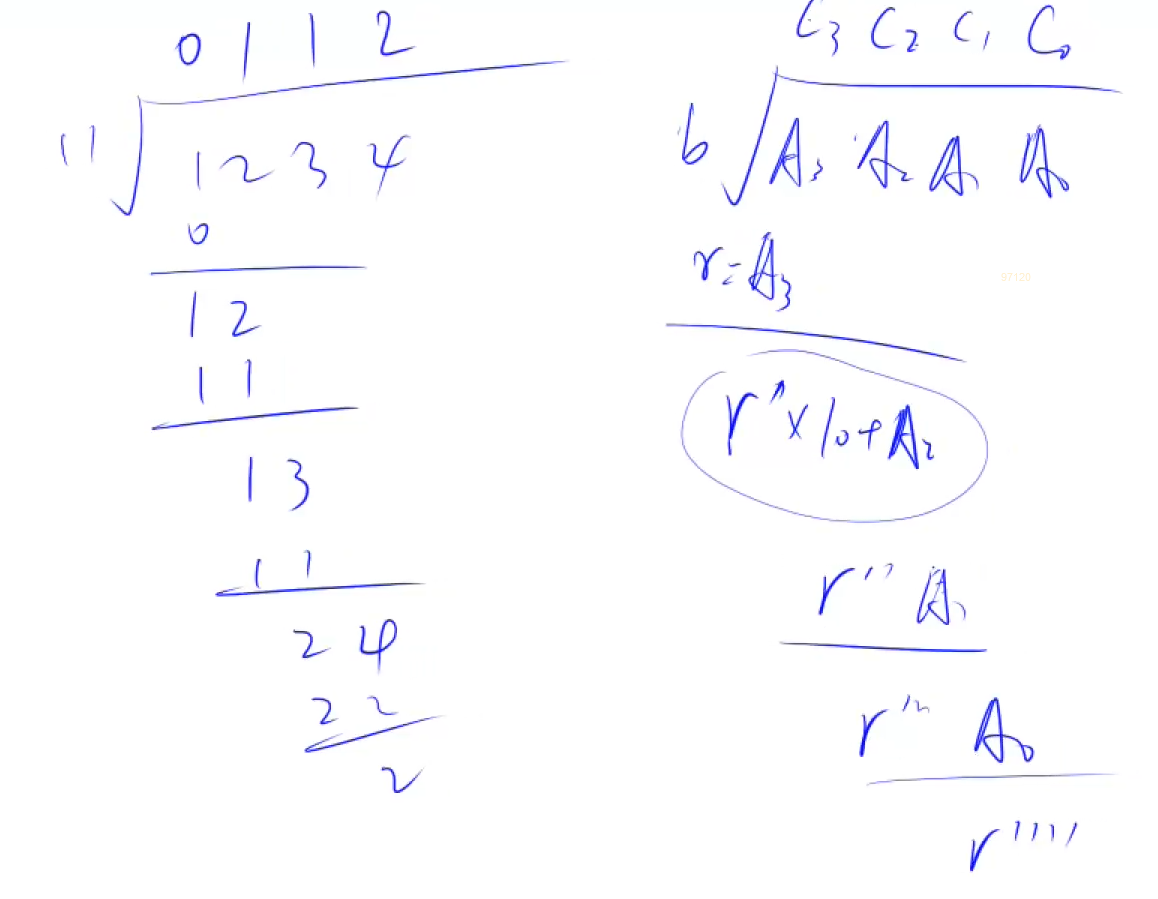 0 1 1 2
11 1 2 3 4
0
1 2
1 1
1 3
1 1
2 4
2 2
2
C₃ C₂ C₁ C₀
b A₃ A₂ A₁ A₀
r=A₃
r'×10+A₂
r'' A₁
r''' A₀
r''''
97120